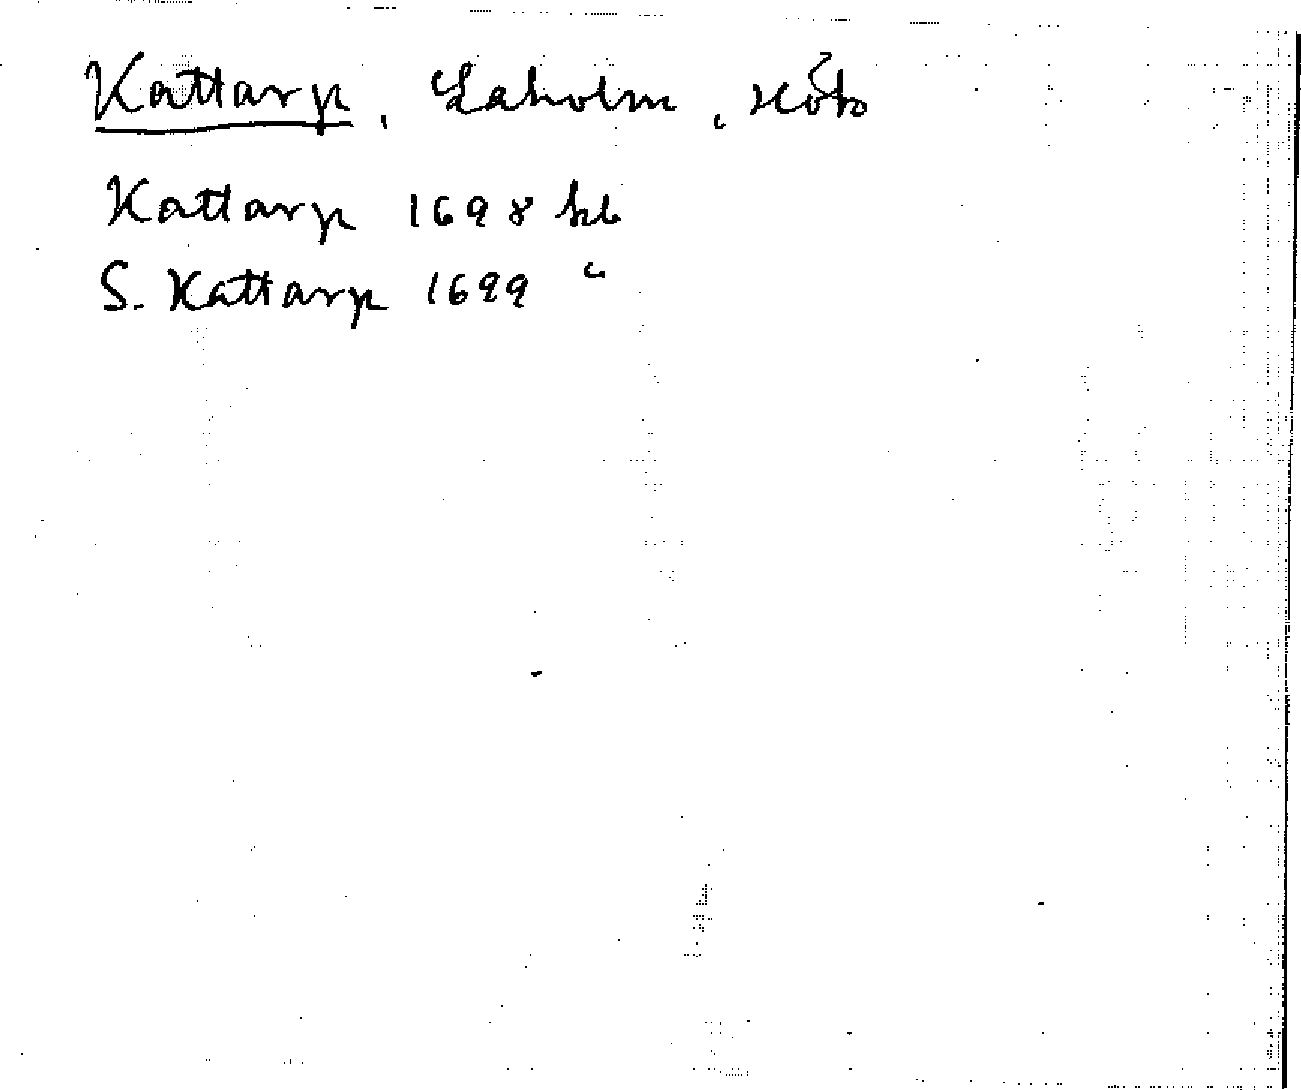 Kattarp, Laholm, Höks
Kattarp 1698 kb
S. Kattarp 1699 "